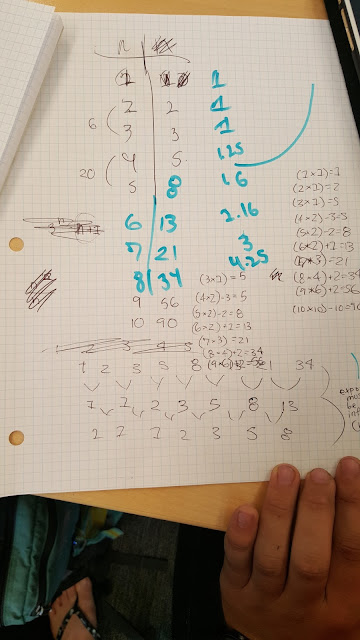 n
1 1 1
2 2 1
6 3 3 1
4 5 1.25
20 5 8 1.6
6 13 2.16
7 21 3
8 34 4.25
9 56
10 90
(1×1)=1
(2×1)=2
(3×1)=5
(4×2)-3=5
(5×2)-2=8
(6×2)+1=13
(7×3)=21
(8×4)+2=34
(9×6)+2=56
(10×10)-10=90
(3×1)=5
(4×2)-3=5
(5×2)-2=8
(6×2)+1=13
(7×3)=21
(8×4)+2=34
1 2 3 5 8 21 34
1 1 2 3 5 8 13
1 1 1 2 3 5 8